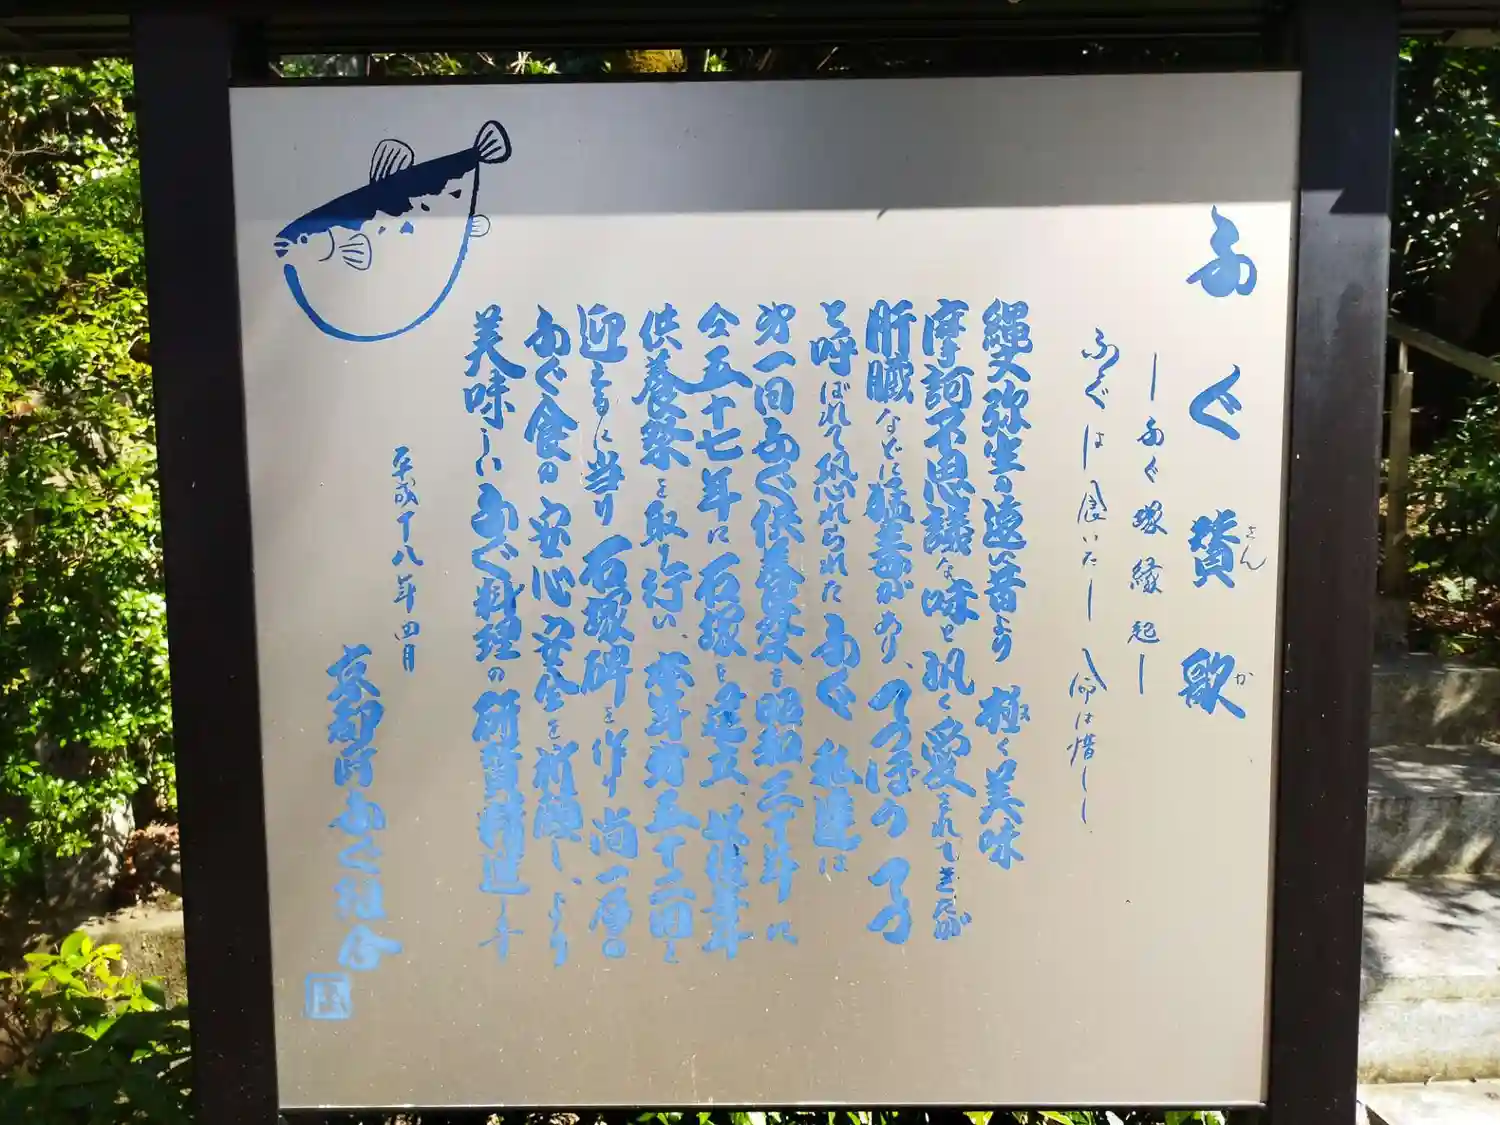 ふぐ賛歌
さん か
―ふぐ塚縁起―
ふぐは食いたし 命は惜しし
縄文弥生の遠い昔より 極く美味
摩訶不思議な味と訊く愛されてきたが
肝臓などに猛毒があり、てっぽうの子
と呼ばれて恐れられた ふぐ 私達は
第一回ふぐ供養祭を昭和三十年に
仝五十七年に石塚を建立、以後毎年
供養祭を取り行い、本年第五十二回を
迎えるに当り 石塚碑を作り尚一層の
ふぐ食の安心安全を祈願し、より
美味しいふぐ料理の研賛精進します
平成十八年四月
京都府ふぐ組合